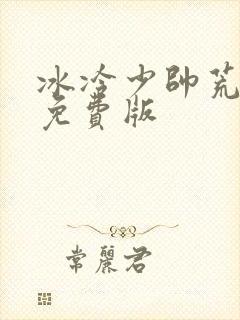 冰冷少帥荒
免費版
常麗君